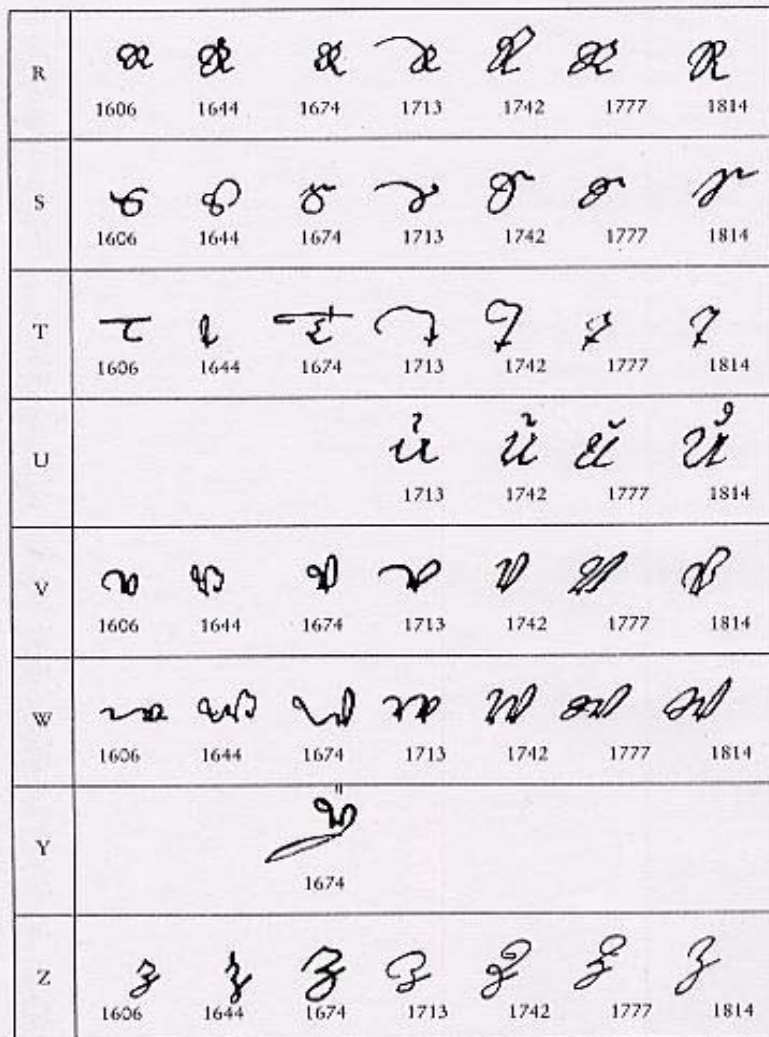 R
1606 1644 1674 1713 1742 1777 1814
S
1606 1644 1674 1713 1742 1777 1814
T
1606 1644 1674 1713 1742 1777 1814
U
1713 1742 1777 1814
V
1606 1644 1674 1713 1742 1777 1814
W
1606 1644 1674 1713 1742 1777 1814
Y
1674
Z
1606 1644 1674 1713 1742 1777 1814